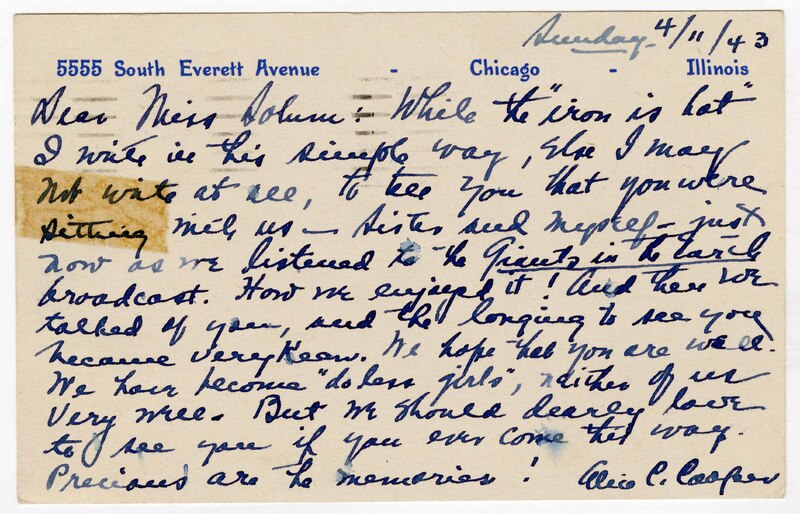 Sunday - 4/11/43
5555 South Everett Avenue - Chicago - Illinois
Dear Miss Solum: While the "iron is hot"
I write in this simple way, else I may
not write at all, to tell you that you were
sitting with us - sister and myself - just
now as we listened to the Giants in the Earth
broadcast. How we enjoyed it! And then we
talked of you, and the longing to see you
became very keen. We hope that you are well.
We have become "doless girls", neither of us
very well. But we should dearly love
to see you if you ever come this way.
Precious are the memories! Alice C. Cooper